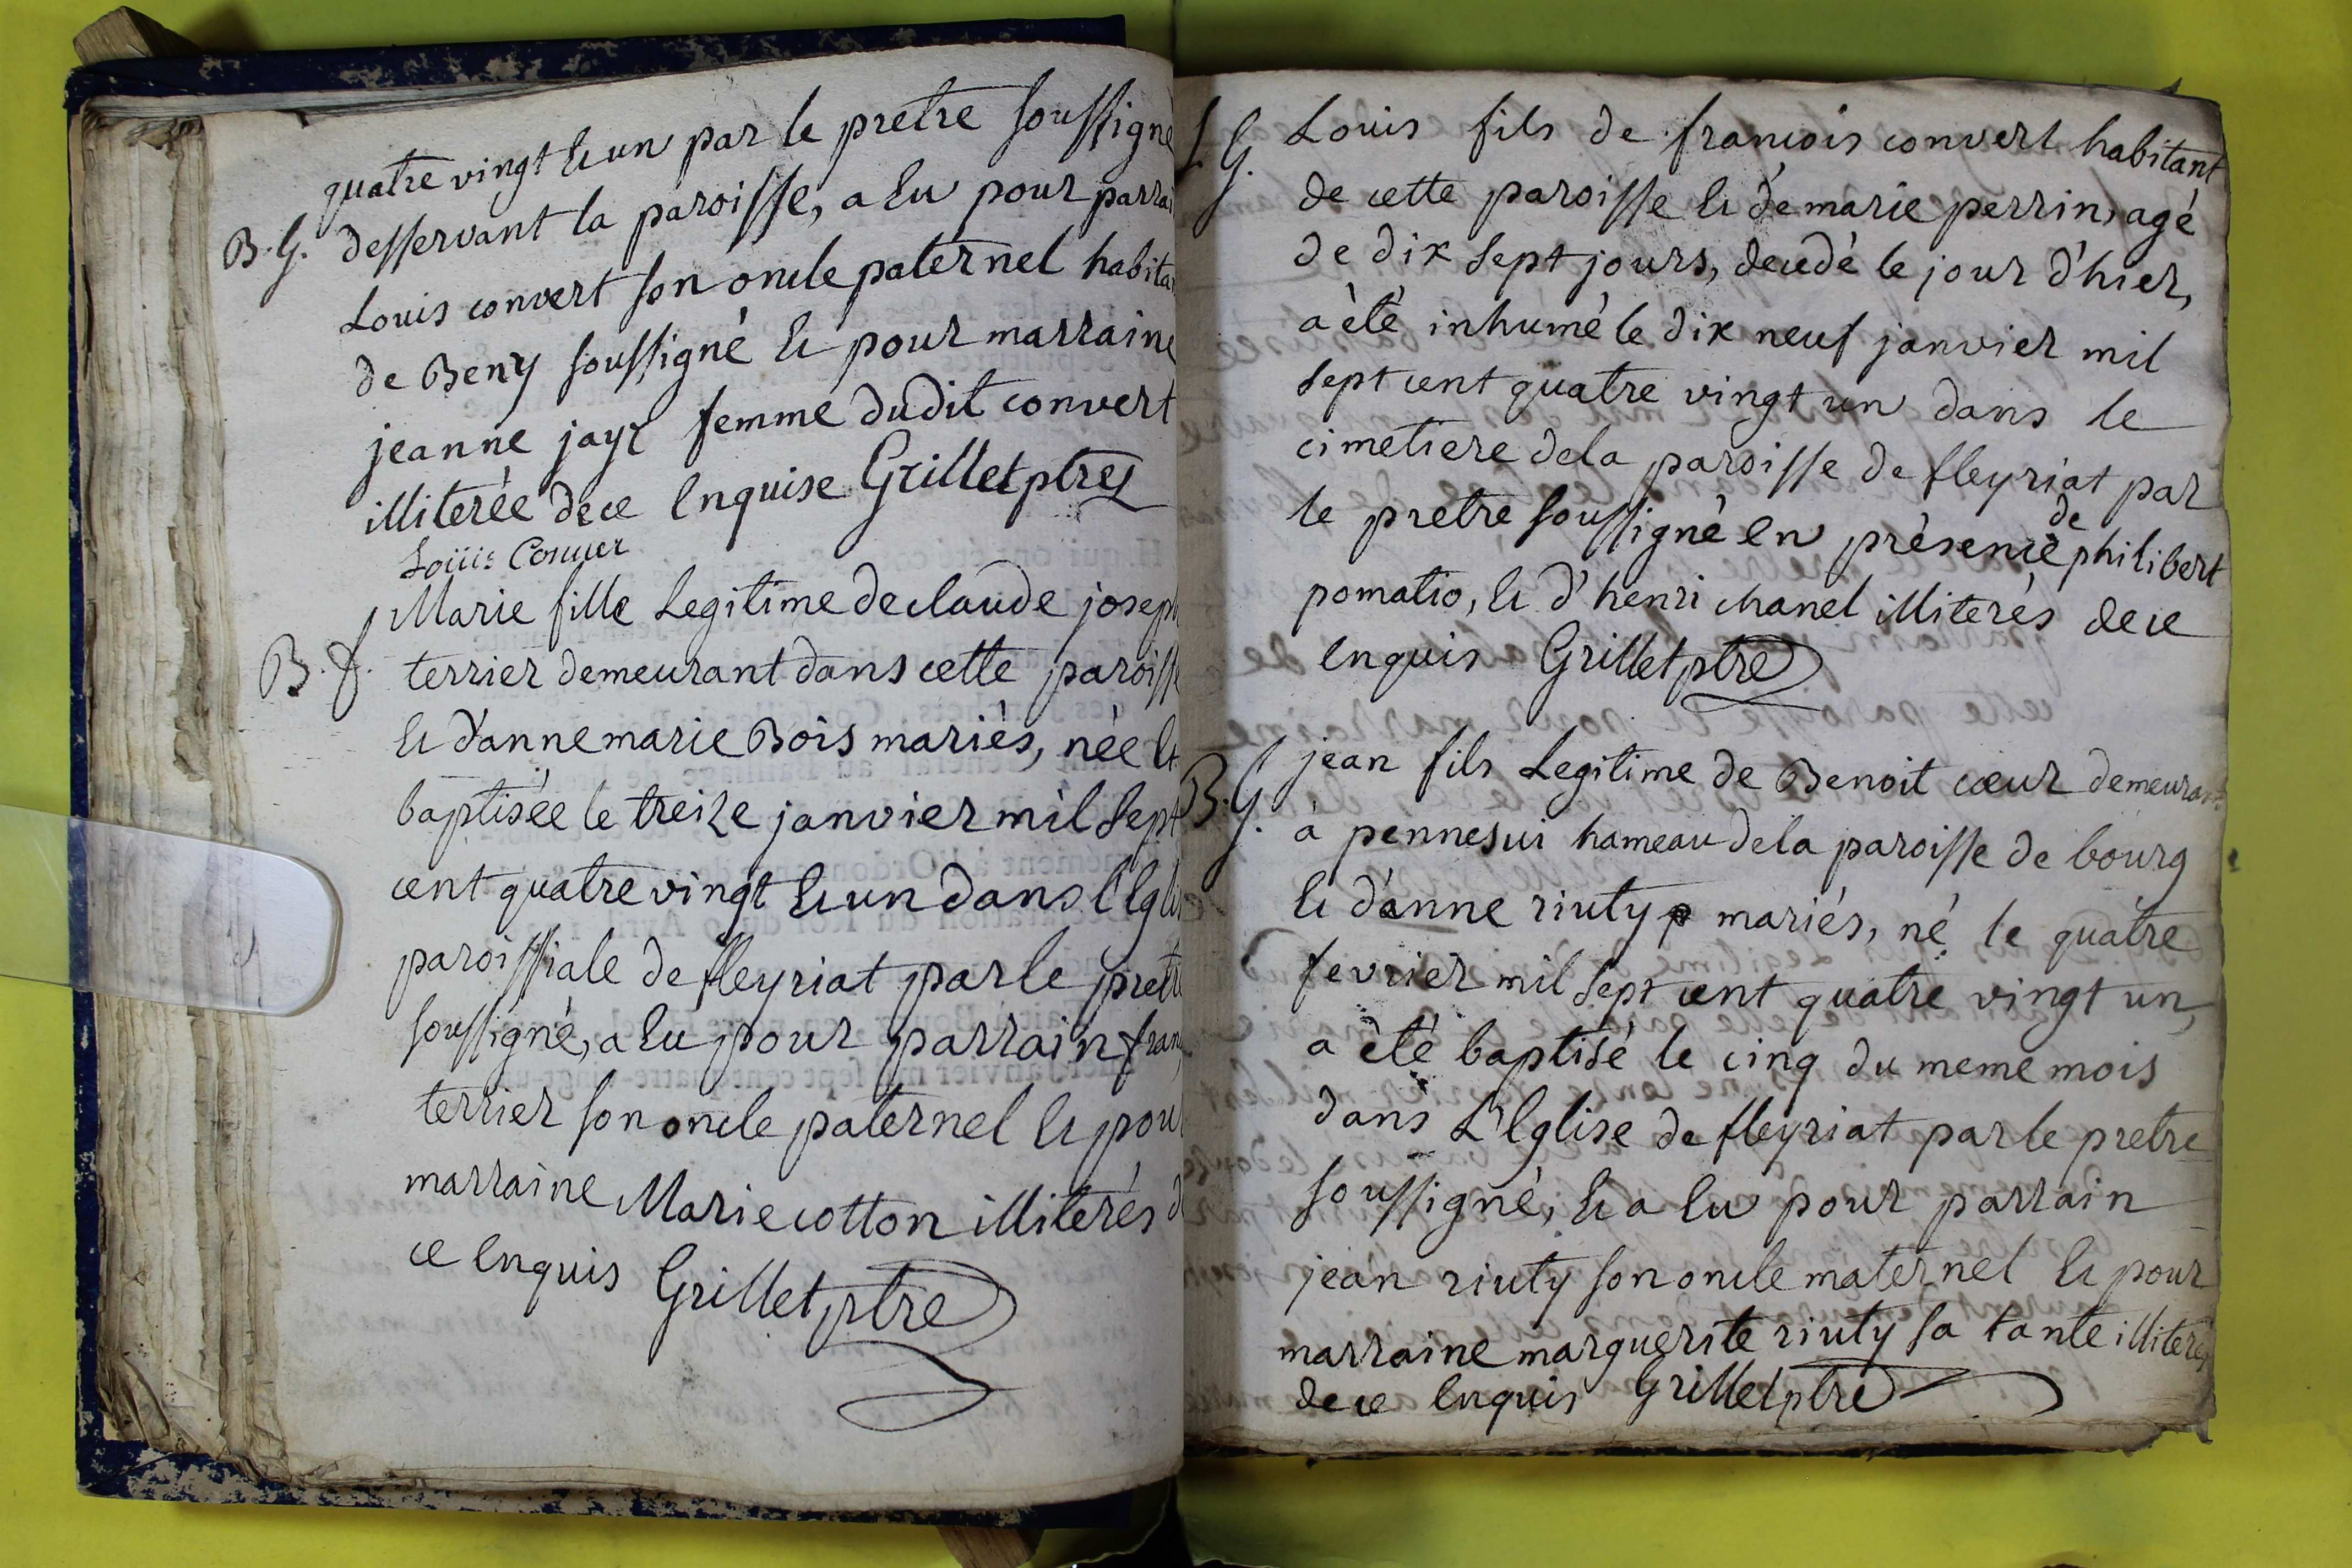 quatre vingt et un par le pretre soussigné
B.G. desservant la paroisse, a eu pour parrai
Louis convert son oncle paternel habita
de Beny soussigné et pour marraine
jeanne jayr femme dudit convert
illiterée de ce enquise Grillet ptre
Loüis Conuer
Marie fille Legitime de claude joseph
B.f. terrier demeurant dans cette paroisse
et d'anne marie Bois mariés, née et
baptisée le treize janvier mil sept
cent quatre vingt et un dans l'Eglis
paroissiale de fleyriat par le pretr
soussigné, a eu pour parrain fran
terrier son oncle paternel et pour
marraine Marie cotton illiterés d
ce enquis Grillet ptre
S.G. Louis fils de francois convert habitant
de cette paroisse et de marie perrin, agé
de dix sept jours, decedé le jour d'hier,
a été inhumé le dix neuf janvier mil
sept cent quatre vingt un dans le
cimetiere de la paroisse de fleyriat par
le pretre soussigné en présence de philibert
pomatio, et d'henri chanel illiterés de ce
enquis Grillet ptre
B.G. jean fils Legitime de Benoit cœur demeurant
à pennesui hameau de la paroisse de bourg
et d'anne riuty mariés, né le quatre
fevrier mil sept cent quatre vingt un,
a été baptisé le cinq du meme mois
dans L'Eglise de fleyriat par le pretre
soussigné, et a eu pour parrain
jean riuty son oncle maternel et pour
marraine marguerite riuty sa tante illiterés
de ce enquis Grillet ptre